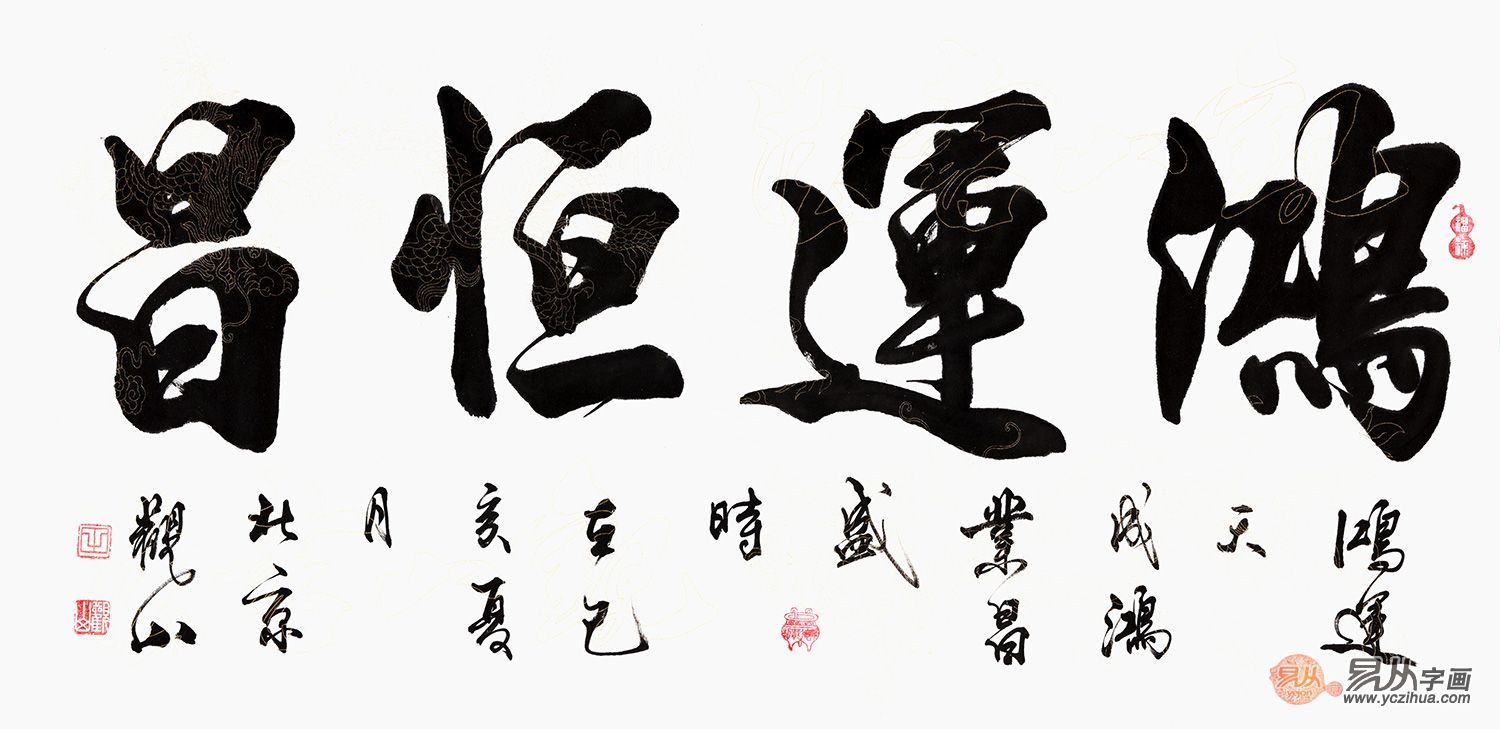 鴻運恒昌
鴻運
天
成鴻
業昌
盛
時
在己
亥夏
月
北京
觀山
易从
易从字画
www.yczihua.com